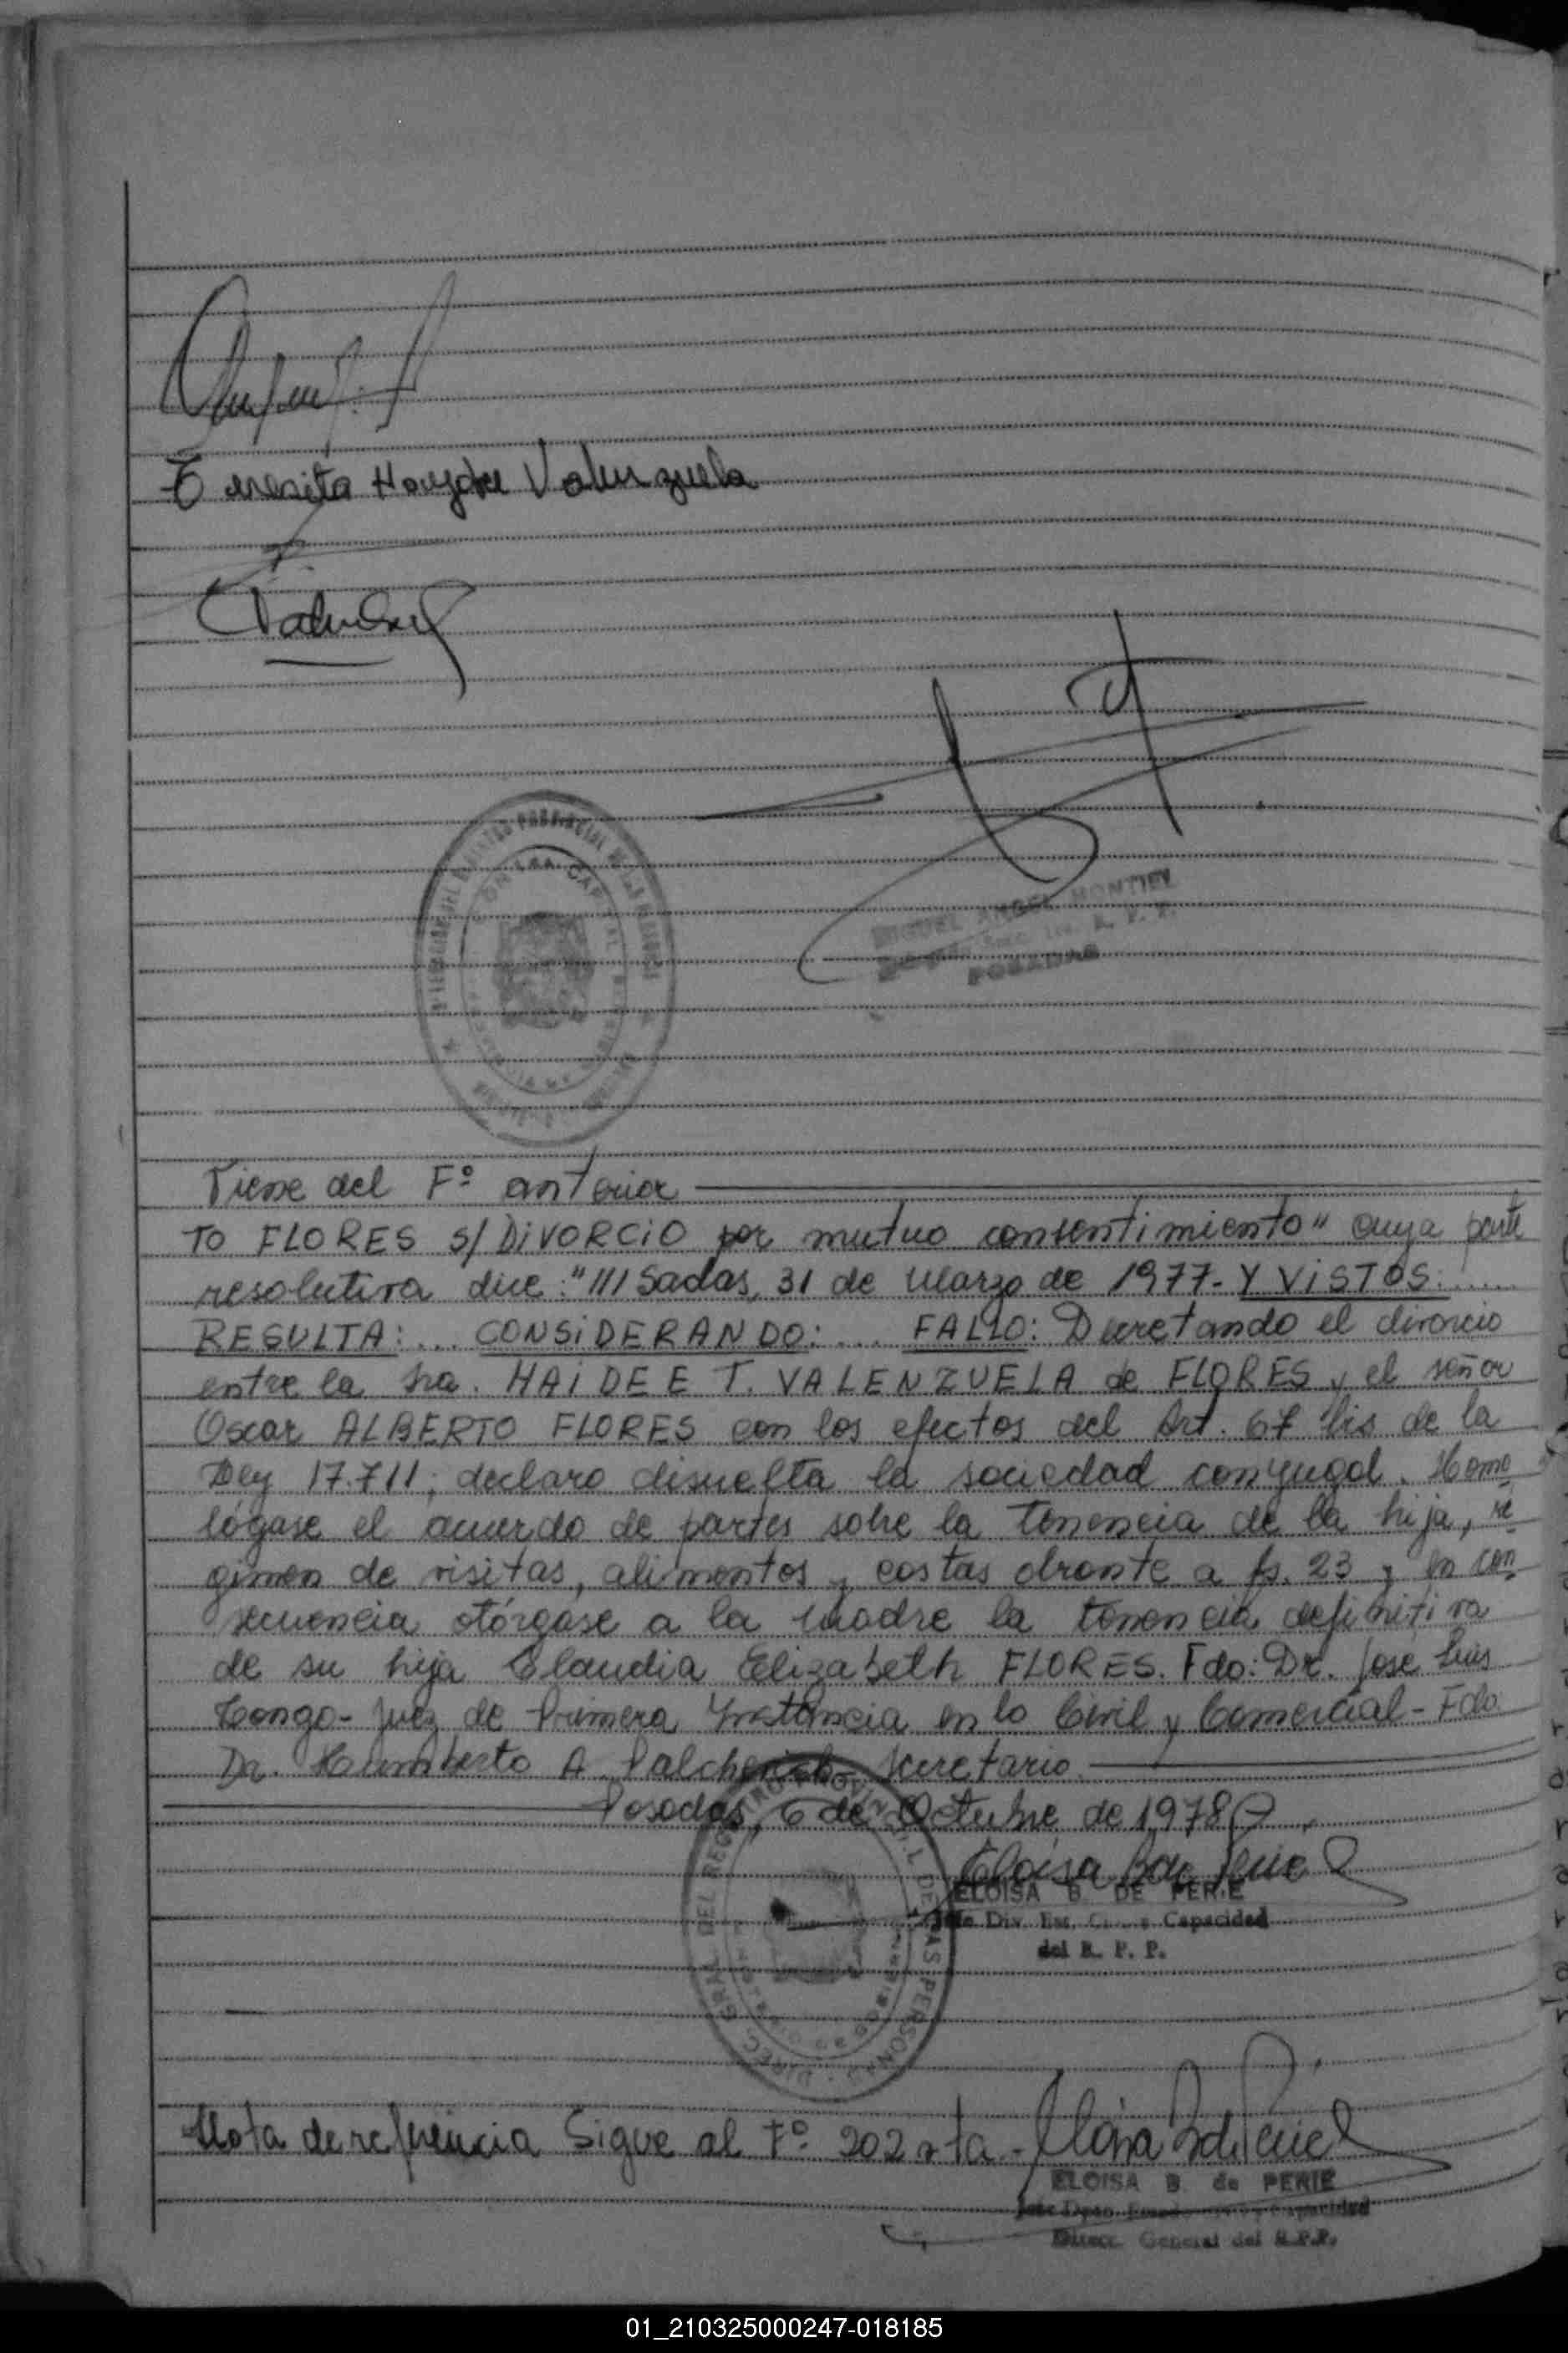 Teresita Haydee Valenzuela
MIGUEL ANGEL MONTIEL
POSADAS
Viene del Fº anterior
TO FLORES S/ DiVORCiO por mutuo consentimiento" cuya parte
resolutiva dice: "///Sadas, 31 de Marzo de 1977- Y ViSTOS:.....
RESULTA:... CONSiDERANDO:.... FALLO: Decretando el divorcio
entre la Sra. HAiDEE T. VALENZUELA de FLORES y el señor
Oscar ALBERTO FLORES con los efectos del Art. 67 bis de la
Ley 17.711; declaro disuelta la sociedad conyugal. Homo
lógase el acuerdo de partes sobre la tenencia de la hija, ré
gimen de visitas, alimentos y costas obrante a fs. 23 y en con
secuencia otórgase a la madre la tenencia definitiva
de su hija Claudia Elizabeth FLORES. Fdo: Dr. José Luis
Juez de Primera Instancia en lo Civil y Comercial- Fdo
Dr. Humberto A. Secretario
Posadas, 6 de Octubre de 1978
ELOISA B. DE PERIE
Jefe Div. Est. Capacidad
del R. P. P.
Nota de referencia Sigue al Fº 202 vta-
ELOISA B. de PERIE
Direcc. General del R.P.P.
01_210325000247-018185